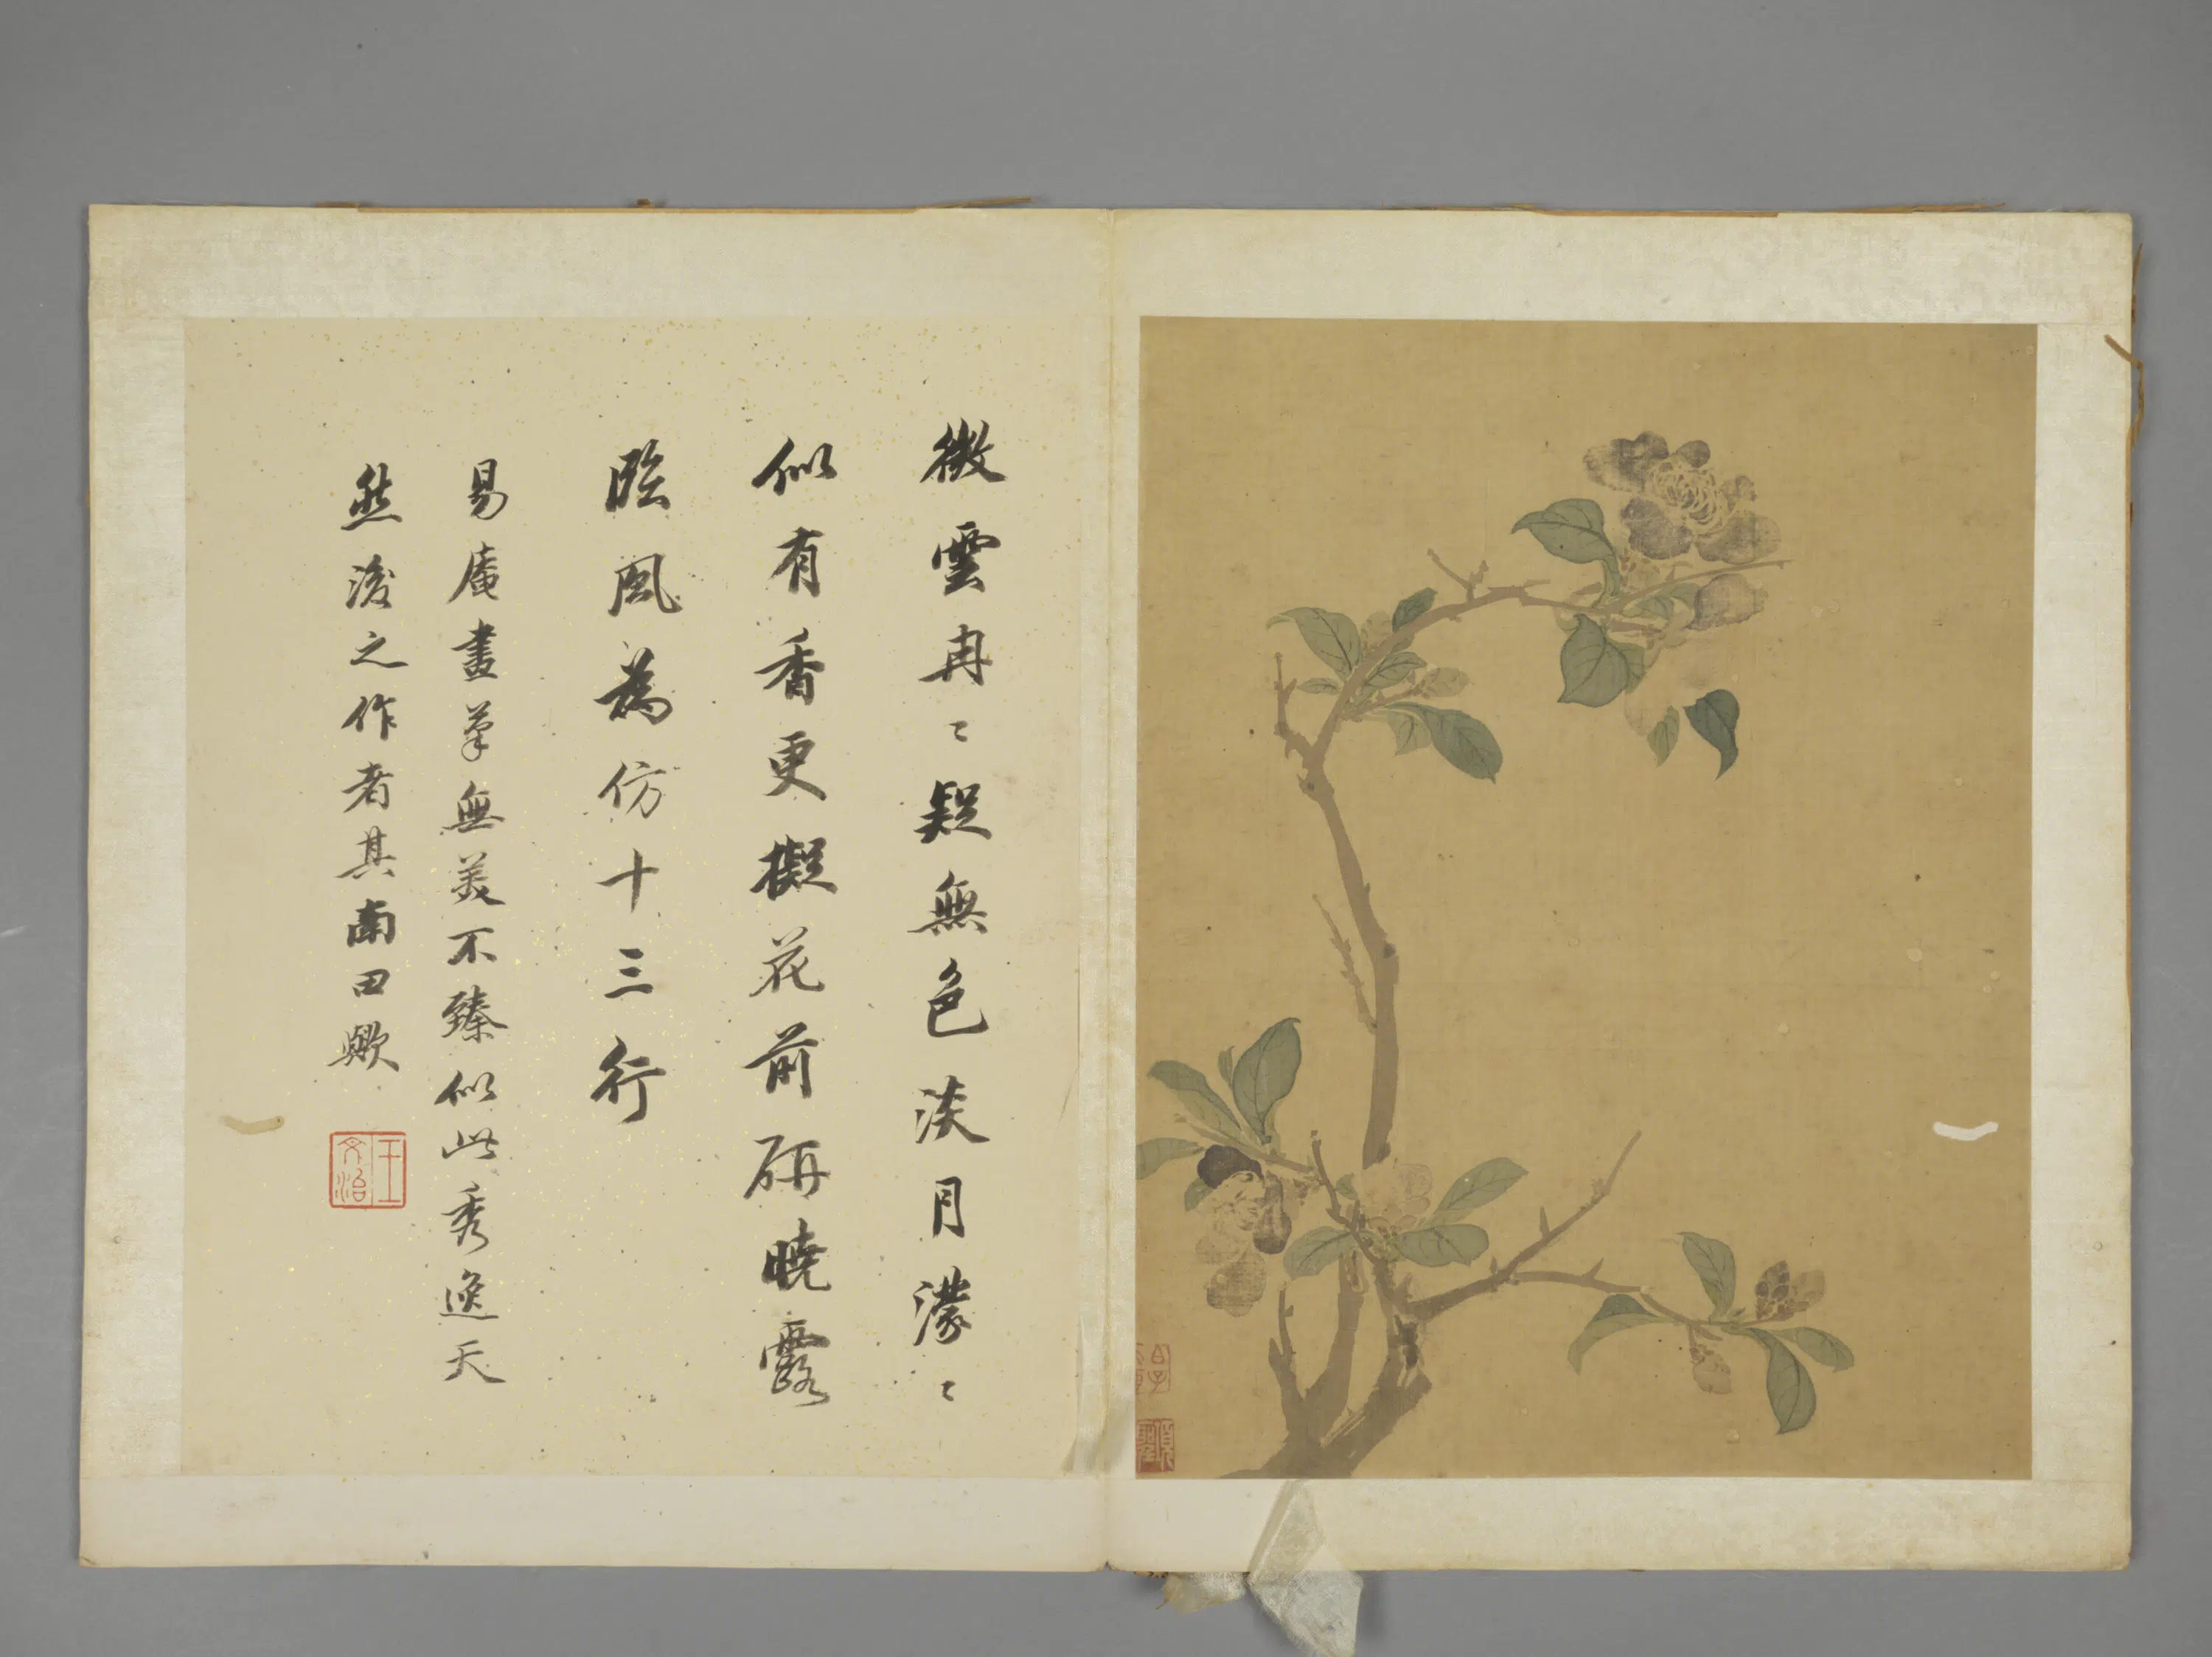 微雲冉〻疑無色淡月濛〻
似有香更擬花前研曉露
臨風為仿十三行
易庵畫筆無美不臻似此秀逸天
然後之作者其南田歟
王文治